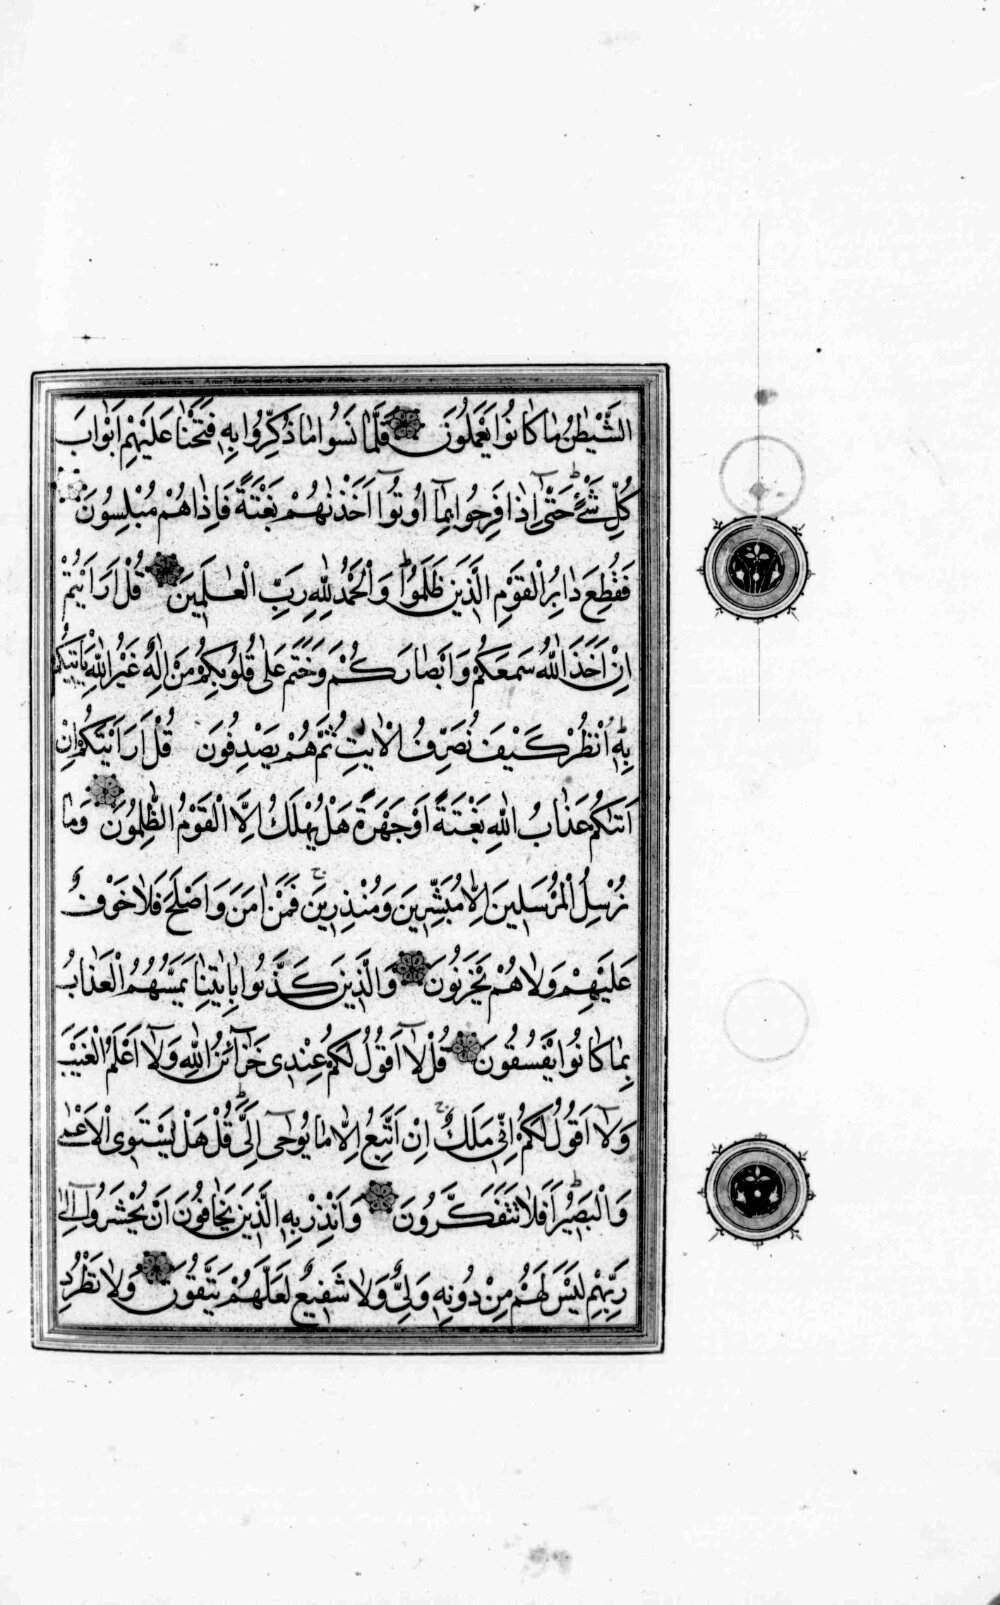 الشَّيْطٰنُ مٰا كٰانُوا يَعْمَلُونَ فَلَمّٰا نَسُوا مٰا ذُكِّرُوا بِهِ فَتَحْنٰا عَلَيْهِمْ اَبْوٰابَ
كُلِّ شَيْءٍ حَتّٰٓى اِذٰا فَرِحُوا بِمٰٓا اُوتُوٓا اَخَذْنٰهُمْ بَغْتَةً فَاِذٰا هُمْ مُبْلِسُونَ
فَقُطِعَ دٰابِرُ الْقَوْمِ الَّذِينَ ظَلَمُوا وَالْحَمْدُ لِلّٰهِ رَبِّ الْعٰلَمِينَ قُلْ اَرَاَيْتُمْ
اِنْ اَخَذَ اللّٰهُ سَمْعَكُمْ وَاَبْصٰارَكُمْ وَخَتَمَ عَلٰى قُلُوبِكُمْ مَنْ اِلٰهٌ غَيْرُ اللّٰهِ يَاْتِيكُمْ
بِهِ اُنْظُرْ كَيْفَ نُصَرِّفُ الْاٰيٰتِ ثُمَّ هُمْ يَصْدِفُونَ قُلْ اَرَاَيْتَكُمْ اِنْ
اَتٰىكُمْ عَذٰابُ اللّٰهِ بَغْتَةً اَوْ جَهْرَةً هَلْ يُهْلَكُ اِلَّا الْقَوْمُ الظّٰلِمُونَ وَمٰا
نُرْسِلُ الْمُرْسَلِينَ اِلّٰا مُبَشِّرِينَ وَمُنْذِرِينَ فَمَنْ اٰمَنَ وَاَصْلَحَ فَلٰا خَوْفٌ
عَلَيْهِمْ وَلٰا هُمْ يَحْزَنُونَ وَالَّذِينَ كَذَّبُوا بِاٰيٰتِنٰا يَمَسُّهُمُ الْعَذٰابُ
بِمٰا كٰانُوا يَفْسُقُونَ قُلْ لٰٓا اَقُولُ لَكُمْ عِنْدِي خَزٰٓائِنُ اللّٰهِ وَلٰٓا اَعْلَمُ الْغَيْبَ
وَلٰٓا اَقُولُ لَكُمْ اِنِّي مَلَكٌ اِنْ اَتَّبِعُ اِلّٰا مٰا يُوحٰٓى اِلَيَّ قُلْ هَلْ يَسْتَوِي الْاَعْمٰى
وَالْبَصِيرُ اَفَلٰا تَتَفَكَّرُونَ وَاَنْذِرْ بِهِ الَّذِينَ يَخٰافُونَ اَنْ يُحْشَرُوٓا اِلٰى
رَبِّهِمْ لَيْسَ لَهُمْ مِنْ دُونِهِ وَلِيٌّ وَلٰا شَفِيعٌ لَعَلَّهُمْ يَتَّقُونَ وَلٰا تَطْرُدِ